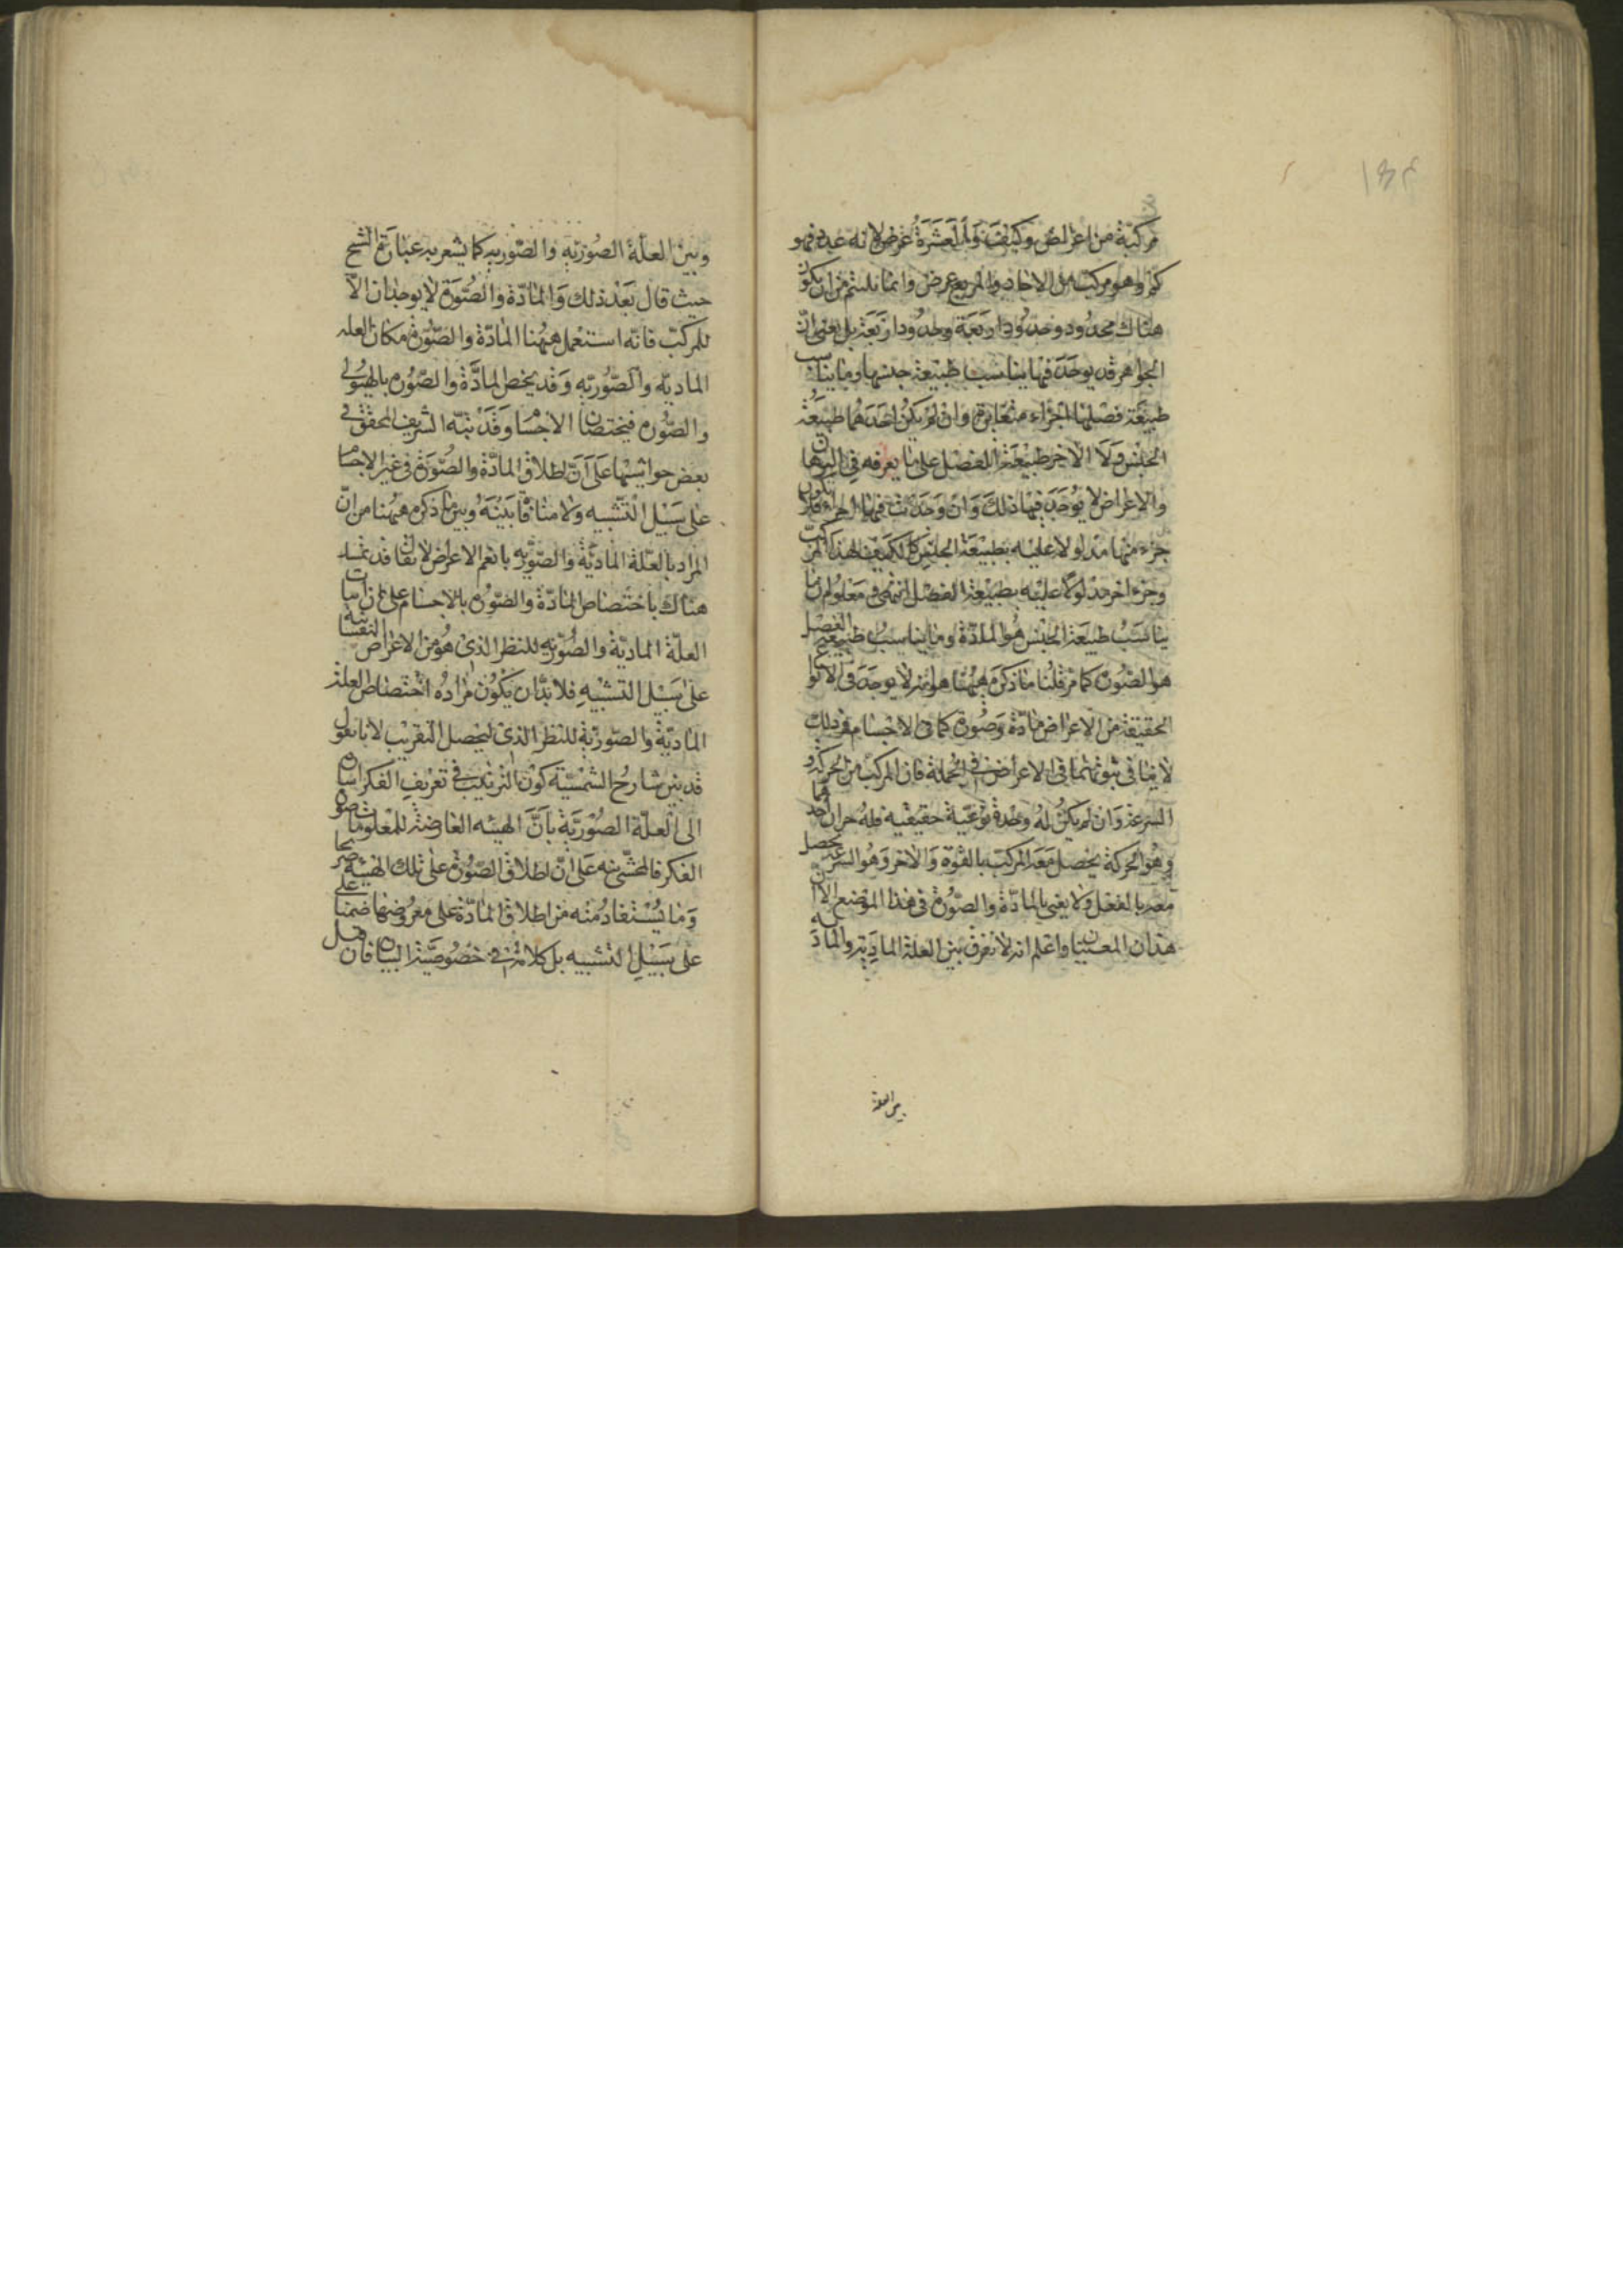 مركبة من اعراض وكيف وان العشرة عرض لانه عدد فهو
كم وهو مركب من الاحاد والمربع عرض وانما يلتئم من ان يكون
هناك محدود وحدود اربعة وحدود اربعة بل يعنى ان
الجواهر قد يوجد فيها يناسب طبيعة جنسها وما يناسب
طبيعة فصلها اجزاء متغايرة وان لم يكن احدهما طبيعة
الجنس ولا الاخر طبيعة الفصل على ما يعرفه فى البرهان
والاعراض لا يوجد فيها ذلك وان وجدت فيها اجزاء فلا يكون
جزء منها مدلولا عليه بطبيعة الجنس كالكمية لهذا المركب
وجزء اخر مدلولا عليه بطبيعة الفصل انتهى معلوم ان ما
يناسب طبيعة الجنس هو المادة وما يناسب طبيعة الفصل
هو الصورة كما مر قلنا ما ذكره ههنا هو انه لا يوجد فى الانواع
الحقيقة من الاعراض مادة وصورة كما فى الاجسام وذلك
لا ينافى ثبوتهما فى الاعراض فى الجملة فان المركب من الحركة و
السرعة وان لم يكن له وحدة نوعية حقيقية فله جزان احدهما
وهو الحركة يحصل معه المركب بالقوة والاخر وهو السرعة يحصل
معه بالفعل ولا يعنى بالمادة والصورة فى هذا الموضع الا
هذان المعنيان واعلم انه لا يفرق بين العلة المادية والمادية
بين العلة
وبين العلة الصورية والصورية كما يشعر به عبارة الشيخ
حيث قال بعد ذلك والمادة والصورة لا يوجدان الا
للمركب فانه استعمل ههنا المادة والصورة مكان العلة
المادية والصورية وقد يخص المادة والصورة بالهيولى
والصورة فيختصان الاجسام وقد نبه الشريف المحقق فى
بعض حواشيها على ان اطلاق المادة والصورة فى غير الاجسام
على سبيل التشبيه ولا منافاة بينه وبين ما ذكره ههنا من ان
المراد بالعلة المادية والصورية ما يعم الاعراض لا يقال قد تمسك
هناك باختصاص المادة والصورة بالاجسام على ان اثبات
العلة المادية والصورية للنظر الذى هو من الاعراض النفسانية
على سبيل التشبيه فلا بد ان يكون مراده اختصاص العلة
المادية والصورية للنظر الذى ليحصل التقريب لانا نقول
قد بين شارح الشمسية كون الترتيب فى تعريف الفكر اشارة
الى العلة الصورية بان الهيئة العارضة للمعلومات صورة
الفكر فالمحشى نبه على ان اطلاق الصورة على تلك الهيئة صريحا
وما يستفاد منه من اطلاق المادة على معروضها ضمنا على
على سبيل التشبيه بل كلامه فى خصوصية البيان فان قيل